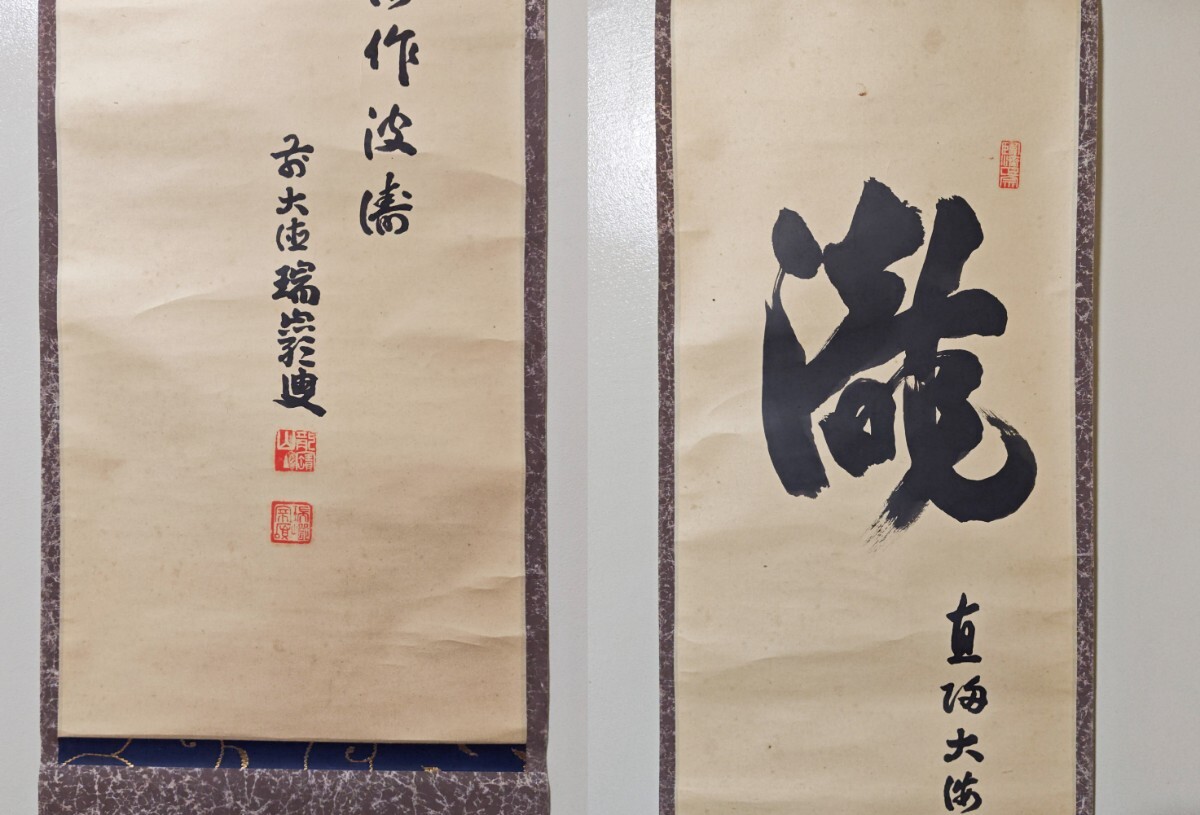 瀧
直帰大海
作波濤
前大徳瑞巌廸